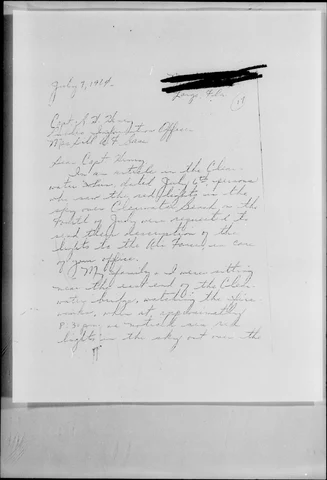 July 7, 1964
Largo, Fla.
Capt.
Information Office
Mac Dill A F Base
Dear Capt. Henry
In an article in the Clear-
water Sun, dated July 6th, persons
who saw the red lights in the
sky over Clearwater Beach on the
Fourth of July were requested to
send their description of the
lights to the Air Force, in care
of your office.
My family & I were sitting
near the east end of the Clear-
water bridge, watching the fire-
works, when at approximately
8:30 pm, we noticed six red
lights in the sky out over the